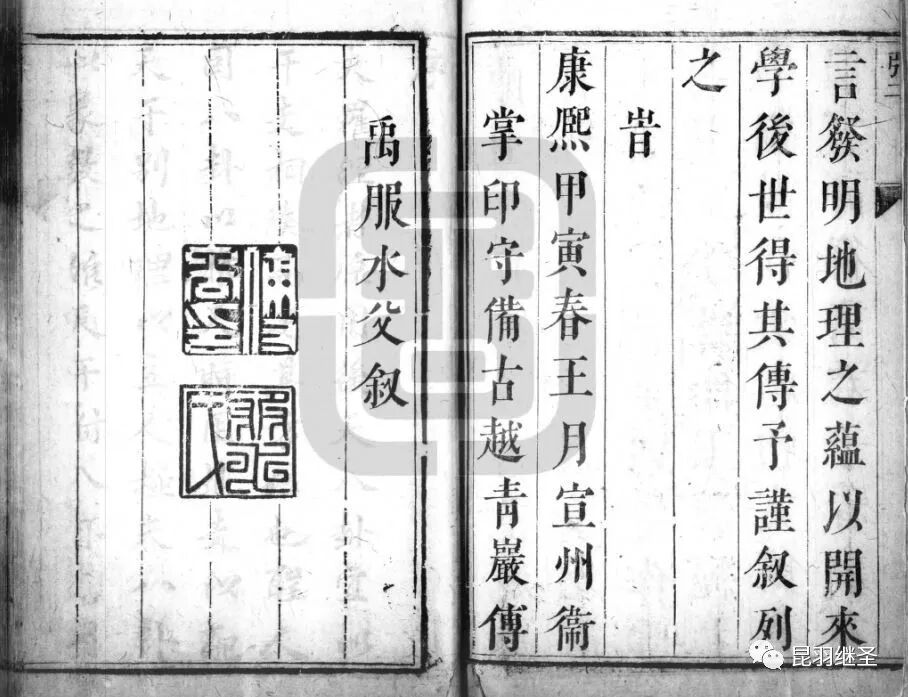 言發明地理之蘊以開來
學後世得其傳予謹叙列
之
旹
康熙甲寅春王月宣州衞
掌印守備古越青巖傳
禹服水父叙
昆羽继圣